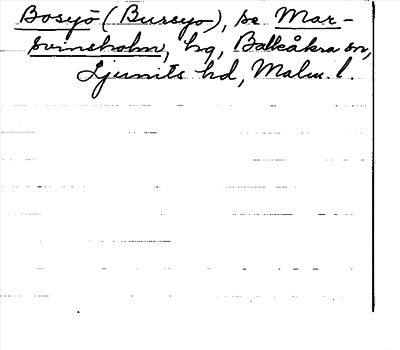 Bosyö (Bursyo), se Mar-
svinsholm, hg, Balkåkra sn,
Ljunits hd, Malm. l.